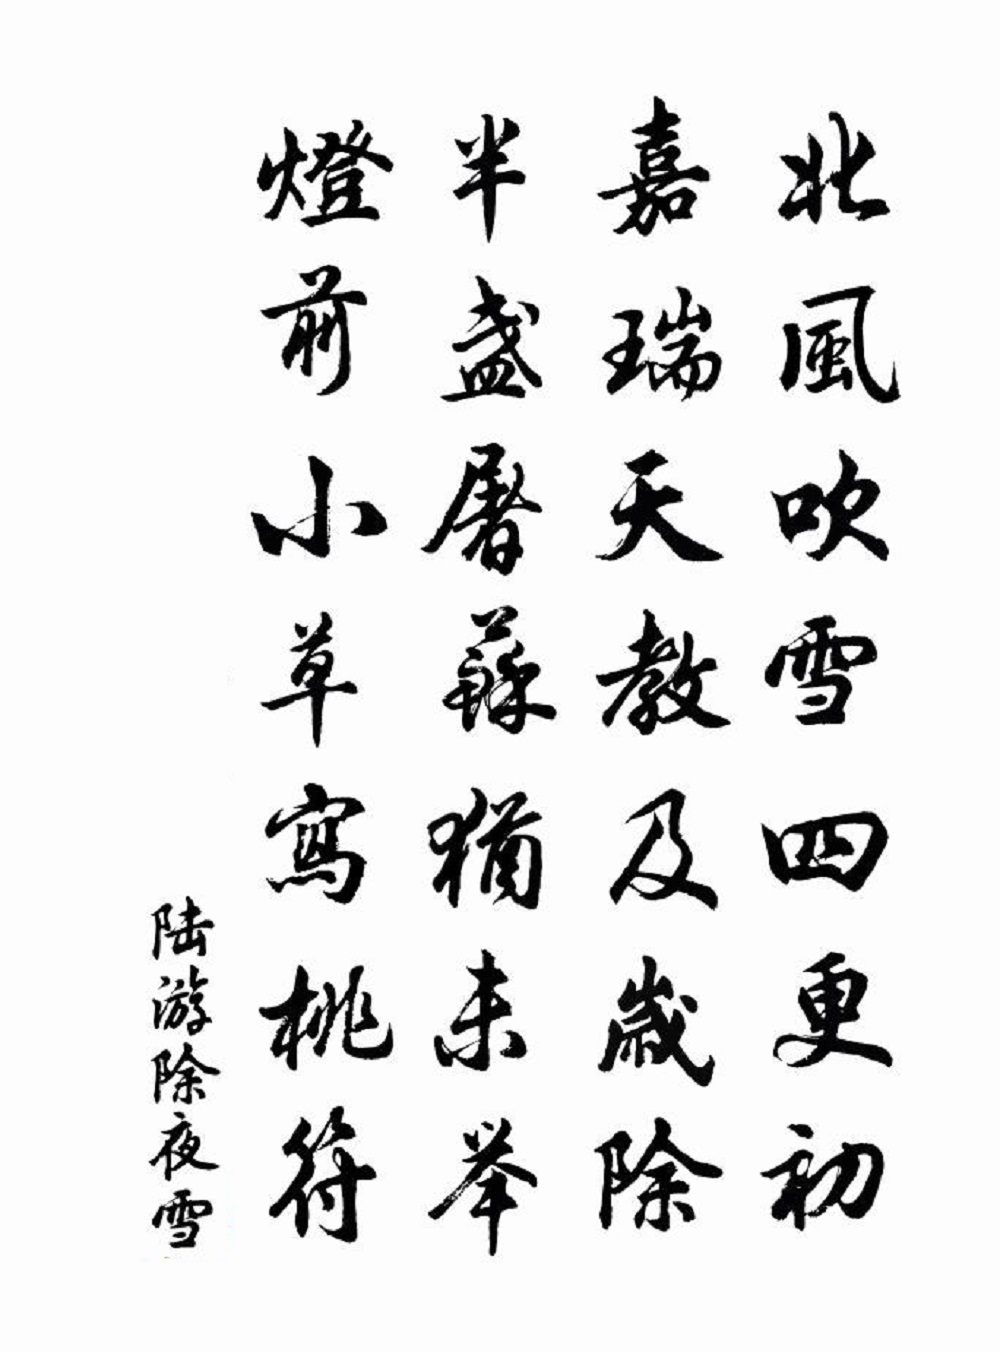 北風吹雪四更初
嘉瑞天教及歲除
半盞屠蘇猶未举
燈前小草寫桃符
陆游除夜雪